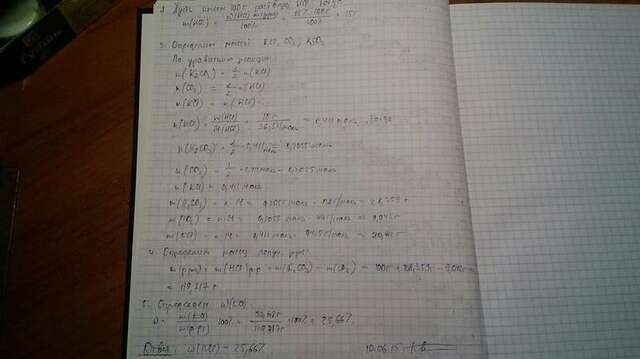 2. Пусть имеем 100 г раствора HCl, тогда
m(HCl) = = 15% · 100г / 100% = 15г
3. Определим массы KCl, CO₂, K₂CO₃
По уравнению реакции:
n(K₂CO₃) = 1/2 n(HCl)
n(CO₂) = 1/2 n(HCl)
n(KCl) = n(HCl)
n(HCl) = m(HCl) / M(HCl) = 15г / 36,5г/моль = 0,411 моль, тогда
n(K₂CO₃) = 1/2 · 0,411 моль = 0,2055 моль
n(CO₂) = 1/2 · 0,411 моль = 0,2055 моль
n(KCl) = 0,411 моль
m(K₂CO₃) = n · M = 0,2055 моль · 138г/моль = 28,359 г
m(CO₂) = n · M = 0,2055 моль · 44г/моль = 9,042 г
m(KCl) = n · M = 0,411 моль · 74,5г/моль =
4. Определим массу р-ра
m(р-ра) = m(HCl) р-р + m(K₂CO₃) – m(CO₂) = 100г + 28,359г – 9,042г =
= 119,317 г
5. Определяем w(KCl)
w = m(KCl) / · 100% = / 119,317г · 100% = 25,66%
Ответ: w(KCl) = 25,66% 10.06.15